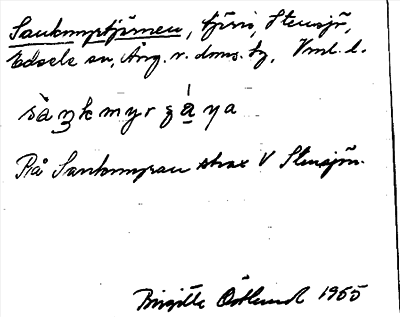 Sankmyrtjärnen, tjärn, Stensjö,
Edsele sn, Ång. v. doms. tg, Vml. l.
På Sankmyran strax V Stensjön.
Birgitta Östlund 1955